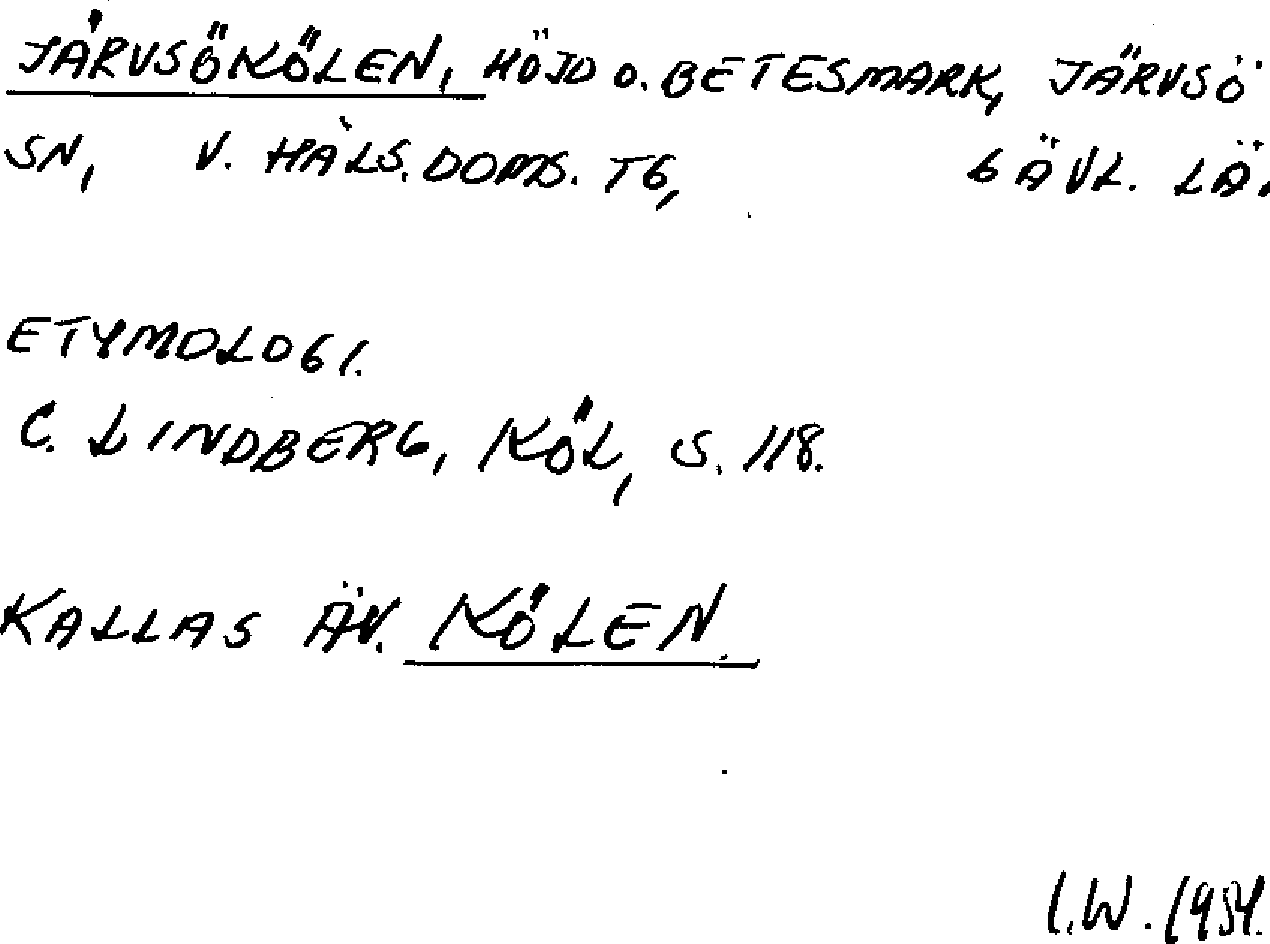 JÄRVSÖKÖLEN, HÖJD O. BETESMARK, JÄRVSÖ
SN, V. HÄLS. DOMS. TG, GÄVL. LÄ.
ETYMOLOGI.
C. LINDBERG, KÖL, S. 118.
KALLAS ÄV. KÖLEN.
I.W. 1954.